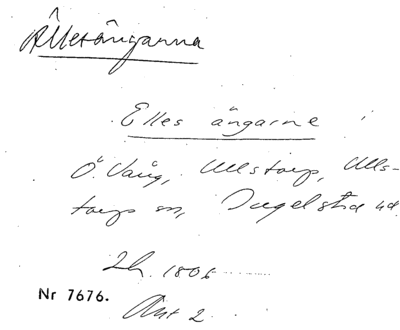 Ällesängarna
Elles ängarne
Ö Vång, Ullstorp, Ulls-
torp sn, Ingelstad hd.
Lh. 1806
Nr 7676.
Akt 2